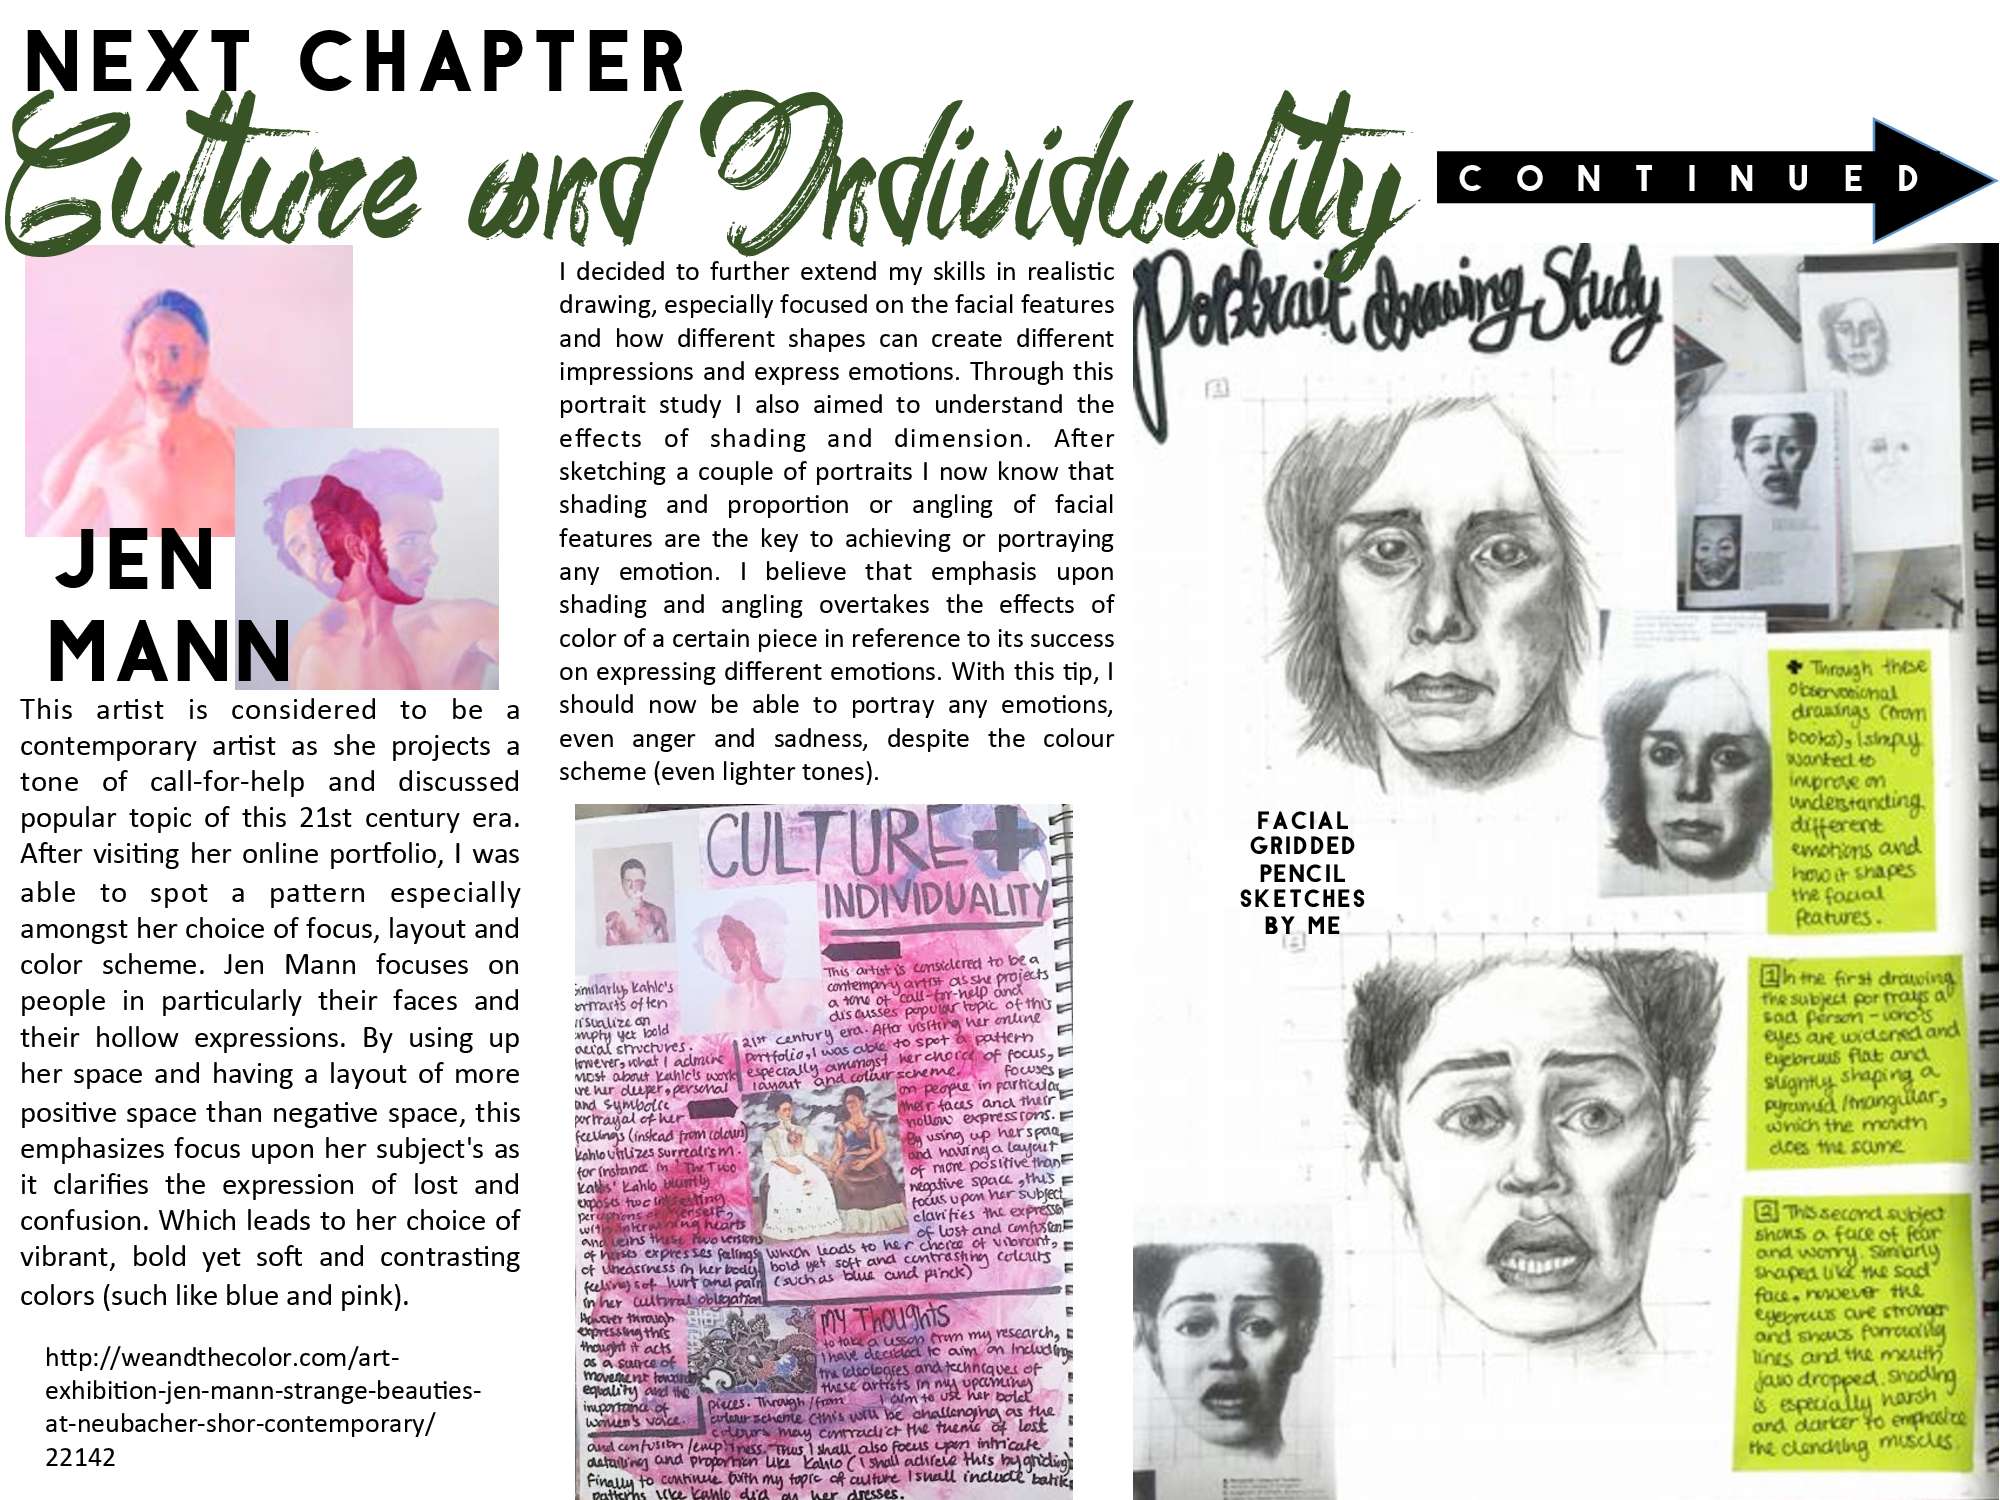 NEXT CHAPTER
Culture and Individuality
CONTINUED
JEN
MANN
This artist is considered to be a
contemporary artist as she projects a
tone of call-for-help and discussed
popular topic of this 21st century era.
After visiting her online portfolio, I was
able to spot a pattern especially
amongst her choice of focus, layout and
color scheme. Jen Mann focuses on
people in particularly their faces and
their hollow expressions. By using up
her space and having a layout of more
positive space than negative space, this
emphasizes focus upon her subject's as
it clarifies the expression of lost and
confusion. Which leads to her choice of
vibrant, bold yet soft and contrasting
colors (such like blue and pink).
http://weandthecolor.com/art-
exhibition-jen-mann-strange-beauties-
at-neubacher-shor-contemporary/
22142
I decided to further extend my skills in realistic
drawing, especially focused on the facial features
and how different shapes can create different
impressions and express emotions. Through this
portrait study I also aimed to understand the
effects of shading and dimension. After
sketching a couple of portraits I now know that
shading and proportion or angling of facial
features are the key to achieving or portraying
any emotion. I believe that emphasis upon
shading and angling overtakes the effects of
color of a certain piece in reference to its success
on expressing different emotions. With this tip, I
should now be able to portray any emotions,
even anger and sadness, despite the colour
scheme (even lighter tones).
CULTURE +
INDIVIDUALITY
This artist is considered to be a
contempory artist as she projects
a tone of call-for-help and
discusses popular topic of this
21st century era. After visiting her online
portfolio, I was able to spot a pattern
especially amongst her choice of focus,
layout and colour scheme. focuses
on people in particular
their faces and their
hollow expressions.
By using up her space
and having a layout
of more positive than
negative space, this
focus upon her subject
clarifies the expression
of lost and confusion
which leads to her choice of vibrant,
bold yet soft and contrasting colours
(such as blue and pinck)
Similarly, Kahlo's
portraits often
visualize an
empty yet bold
facial structures.
However, what I admire
most about Kahlo's work
are her deeper, personal
and symbolic
portrayal of her
feelings (instead from colours)
Kahlo utilizes surrealism.
for instance in 'The Two
Kahlo bluntly
exposes two interesting
perceptions of herself,
with intertwining hearts
and veins these two versions
of herses expresses feelings
of uneasiness in her body
feelings of hurt and pain
in her cultural obligation
However through
expressing this
thought it acts
as a source of
movement toward
equality and the
importance of
women's voice.
My Thoughts
to take a lesson from my research,
I have decided to aim on including
the ideologies and techniques of
these artists in my upcoming
pieces. Through/from I aim to use her bold
colour scheme (this will be challenging as the
colours may contradict the theme of lost
and confusion/emptiness. Thus I shall also focus upon intricate
detailing and proportion like Kahlo (I shall achieve this by griding)
Finally to continue with my topic of culture I shall include batik
patterns like Kahlo did on her dresses.
Portrait drawing Study
1
FACIAL
GRIDDED
PENCIL
SKETCHES
BY ME
2
+ Through these
observational
drawings (from
books), I simply
wanted to
improve on
understanding
different
emotions and
how it shapes
the facial
features.
1 In the first drawing
the subject portrays a
sad person - who's
eyes are widened and
eyebrows flat and
slightly shaping a
pyramid/triangular,
which the mouth
does the same
2 This second subject
shows a face of fear
and worry. Similarly
shaped like the sad
face, however the
eyebrows are stronger
and shows furrowing
lines and the mouth
jaw dropped. Shading
is especially harsh
and darker to emphasize
the clenching muscles.